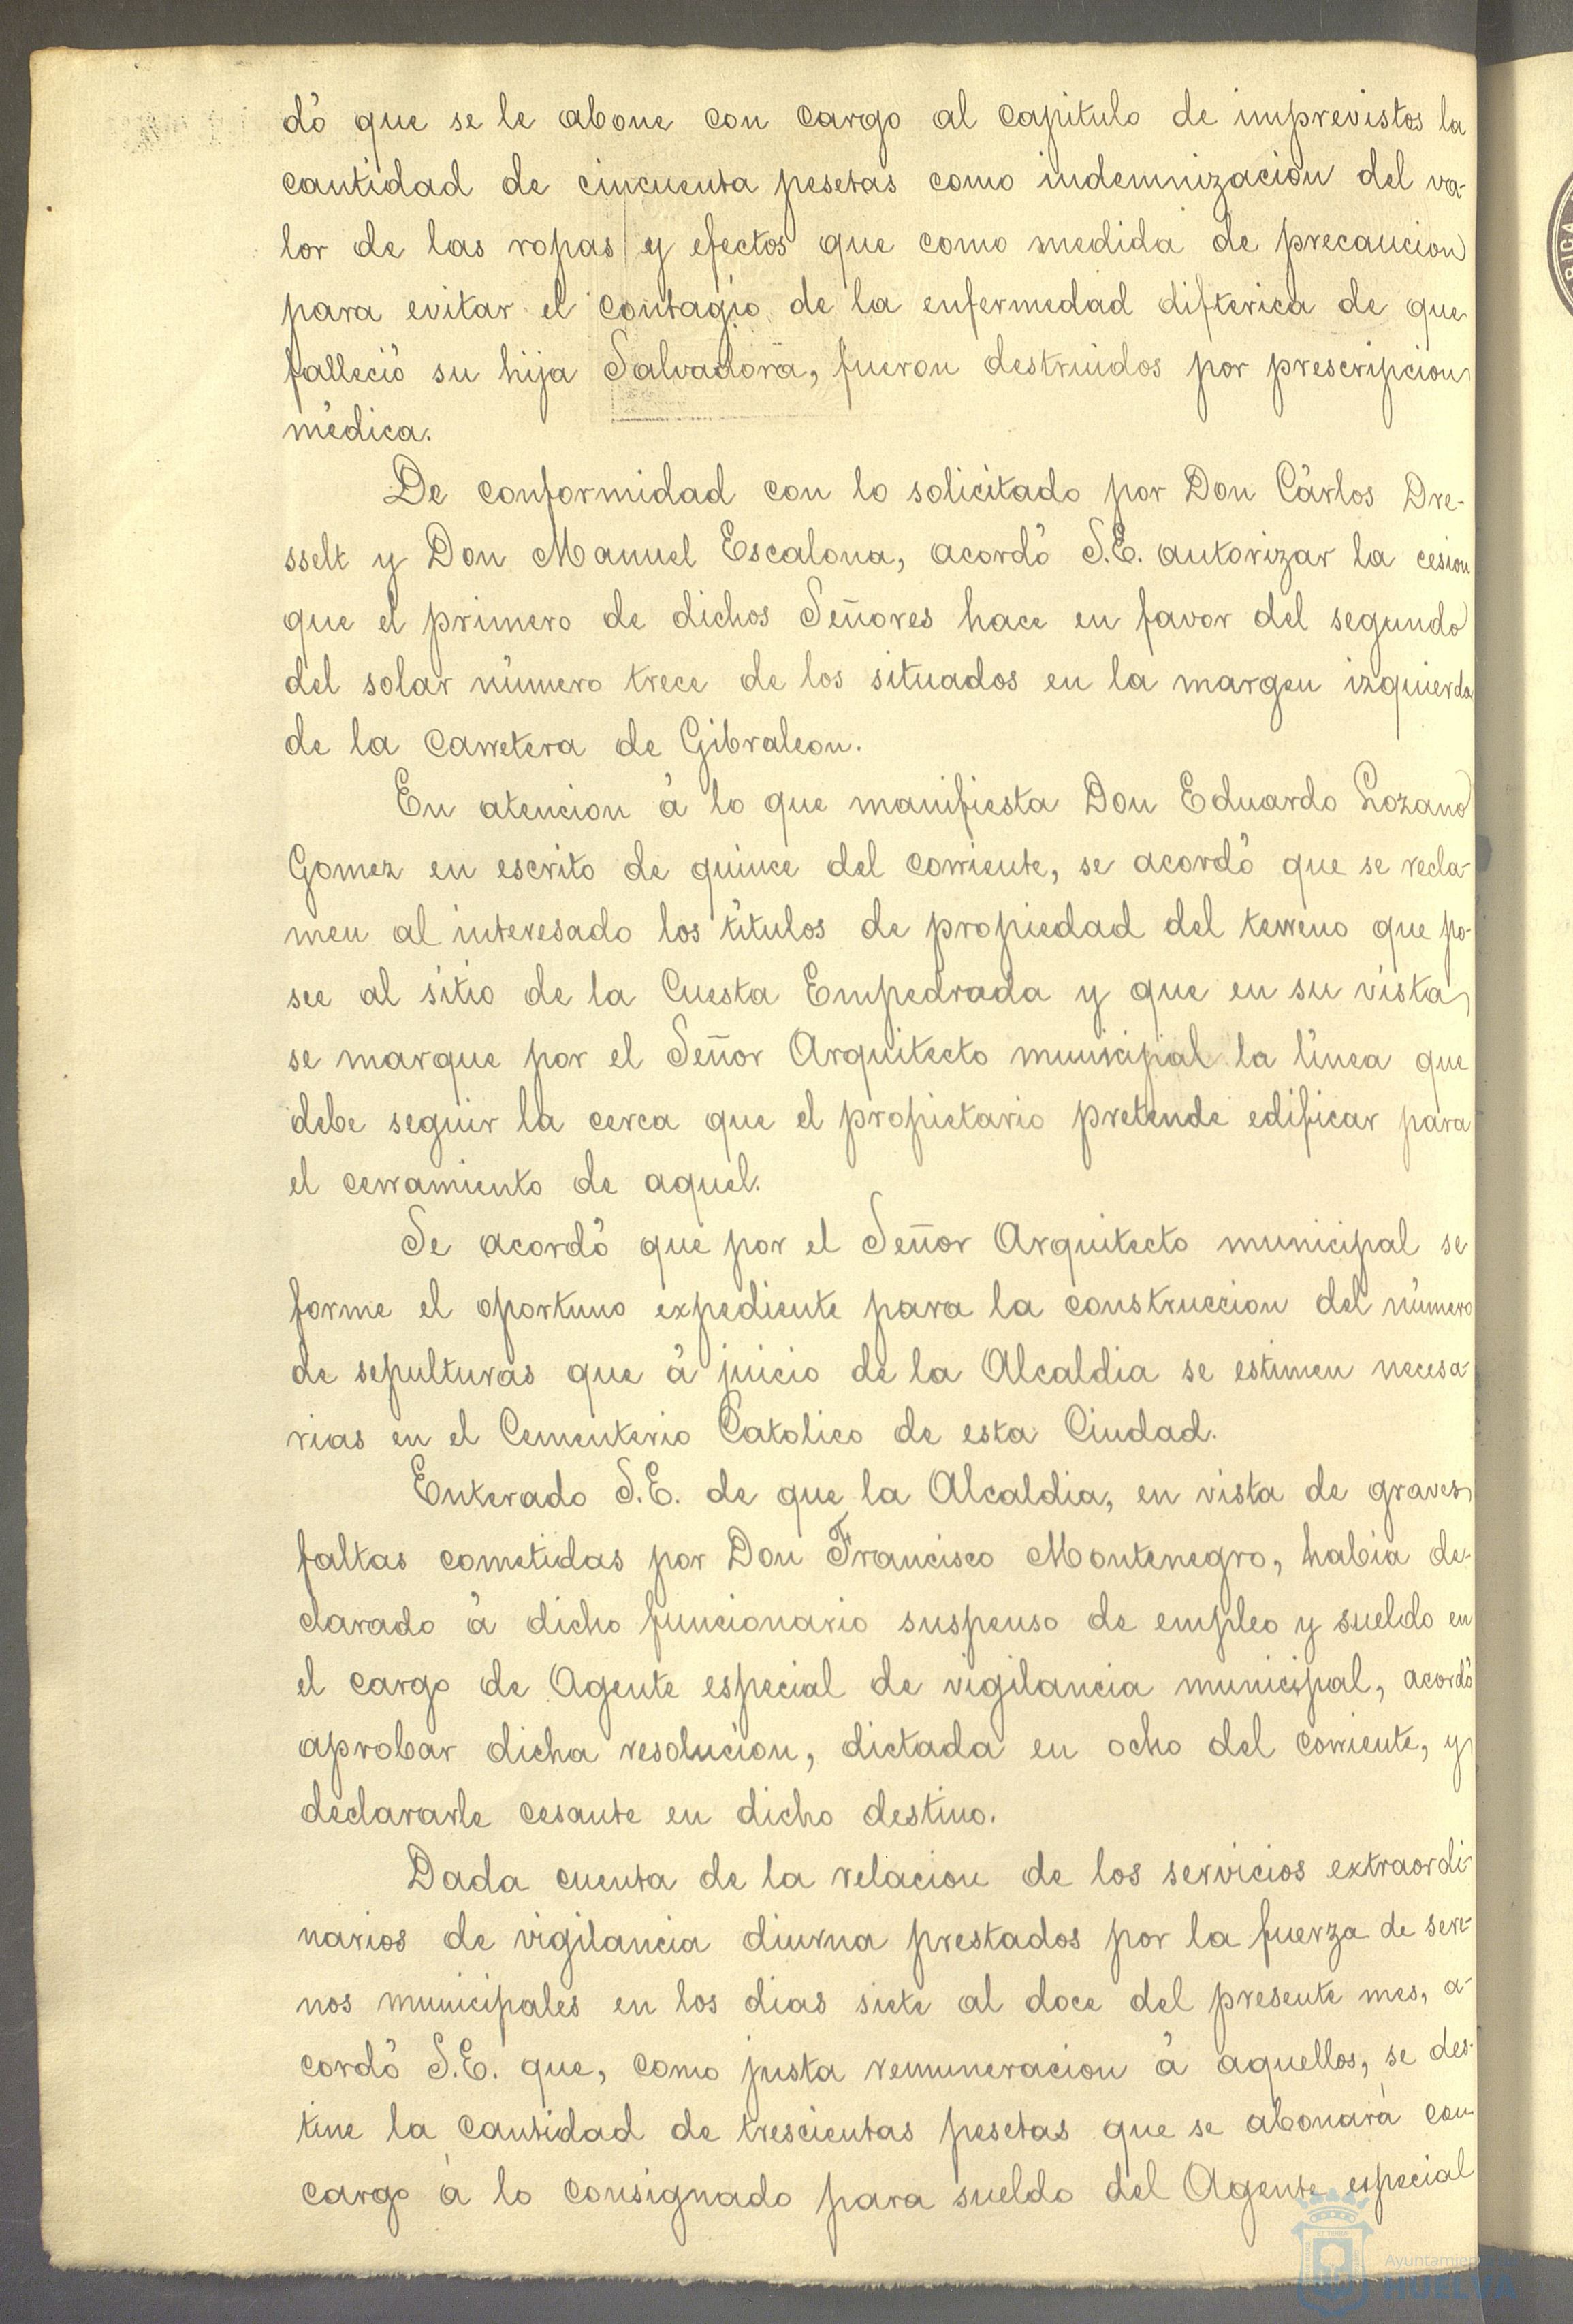 dó que se le abone con cargo al capitulo de imprevistos la
cantidad de cincuenta pesetas como indemnizacion del va-
lor de las ropas y efectos que como medida de precaucion
para evitar el contagio de la enfermedad difterica de que
falleció su hija Salvadora, fueron destruidos por prescripcion
médica.
De conformidad con lo solicitado por Don Cárlos Dre-
sselt y Don Manuel Escalona, acordó S.E. autorizar la cesion
que el primero de dichos Señores hace en favor del segundo
del solar número trece de los situados en la margen izquierda
de la Carretera de Gibraleon.
En atencion á lo que manifiesta Don Eduardo Lozano
Gomez en escrito de quince del corriente, se acordó que se recla-
men al interesado los títulos de propiedad del terreno que po-
see al sitio de la Cuesta Empedrada y que en su vista
se marque por el Señor Arquitecto municipal la línea que
debe seguir la cerca que el propietario pretende edificar para
el cerramiento de aquel.
Se acordó que por el Señor Arquitecto municipal se
forme el oportuno expediente para la construccion del número
de sepulturas que á juicio de la Alcaldia se estimen necesa-
rias en el Cementerio Catolico de esta Ciudad.
Enterado S.E. de que la Alcaldia, en vista de graves
faltas cometidas por Don Francisco Montenegro, habia de-
clarado á dicho funcionario suspenso de empleo y sueldo en
el cargo de Agente especial de vigilancia municipal, acordó
aprobar dicha resolucion, dictada en ocho del corriente, y
declararle cesante en dicho destino.
Dada cuenta de la relacion de los servicios extraordi-
narios de vigilancia diurna prestados por la fuerza de sere-
nos municipales en los dias siete al doce del presente mes, a-
cordó S.E. que, como justa remuneracion á aquellos, se des-
tine la cantidad de trescientas pesetas que se abonará con
cargo á lo consignado para sueldo del Agente especial
HUELVA